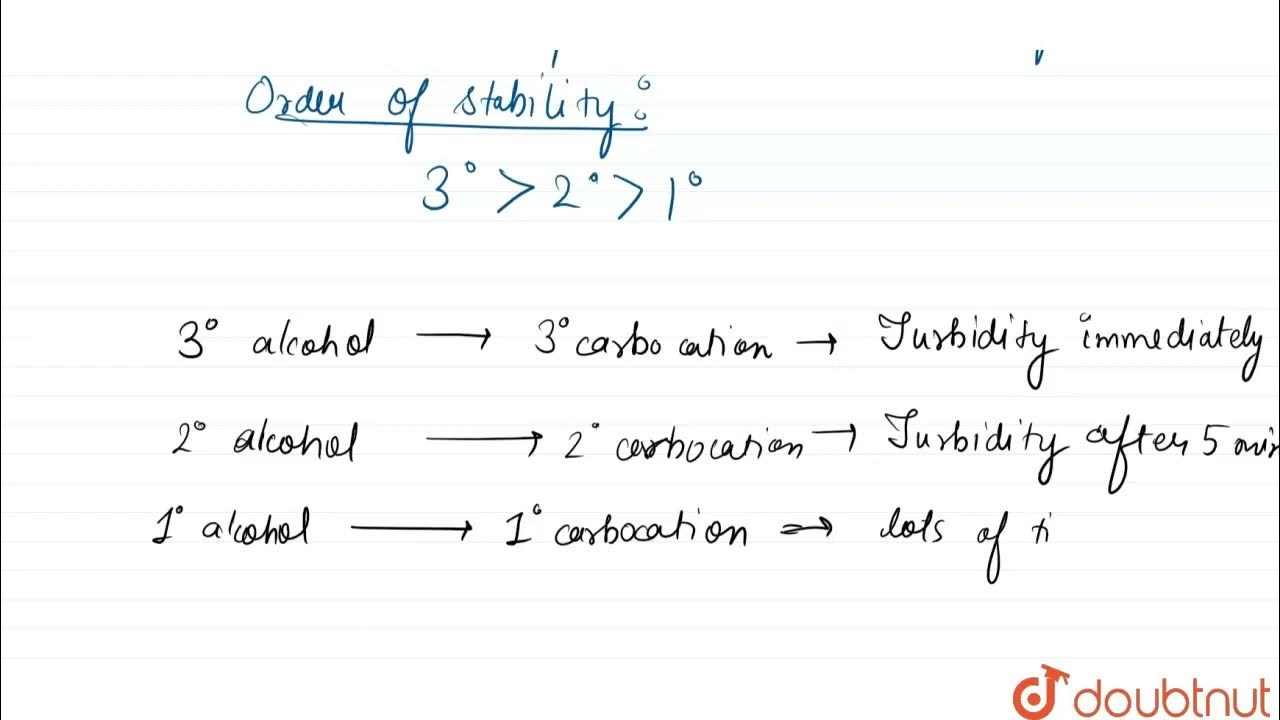 Order of stability:
3° > 2° > 1°
3° alcohol → 3° carbocation → Turbidity immediately
2° alcohol → 2° carbocation → Turbidity after 5 min
1° alcohol → 1° carbocation ⇒ lots of
doubtnut